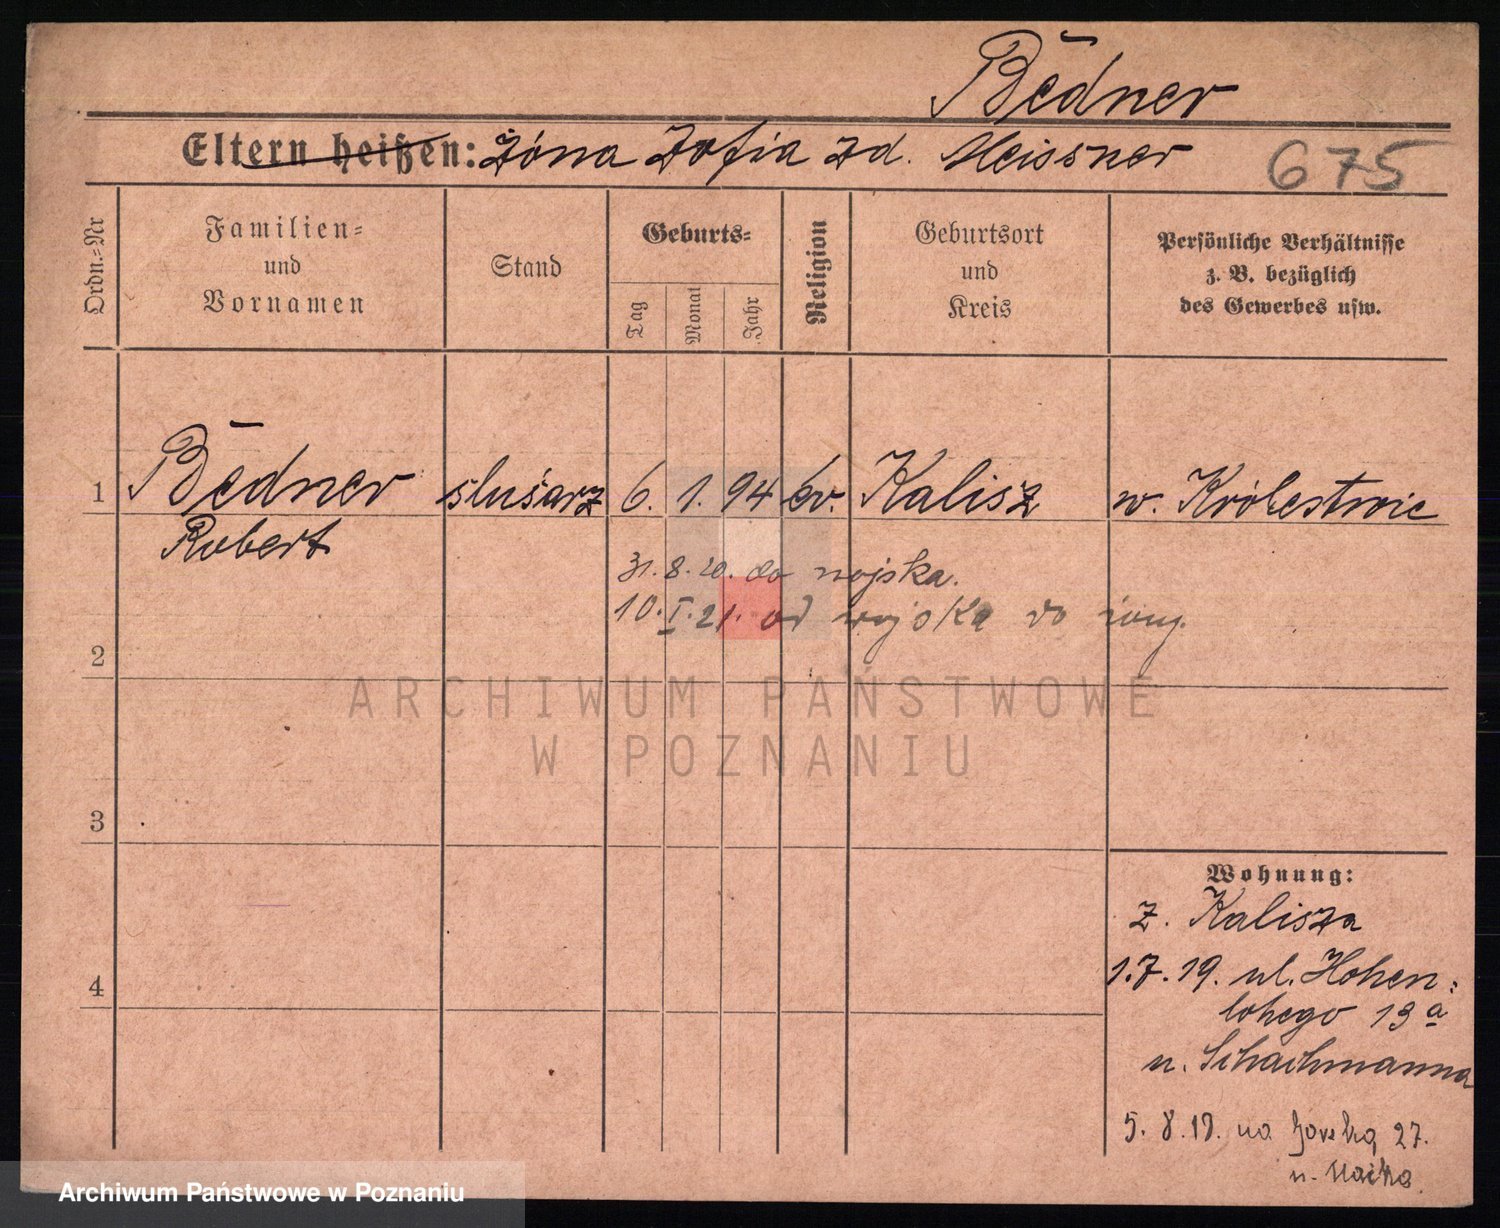 Bedner
Eltern heißen: Żona Zofia zd. Meissner
675
Ordn.=Nr
Familien=
und
Vornamen
Stand
Geburts=
Tag
Monat
Jahr
Religion
Geburtsort
und
Kreis
Persönliche Verhältnisse
z. B. bezüglich
des Gewerbes usw.
1 Bedner ślusarz 6. 1. 94 ev. Kalisz w. Królestwie
Robert
31. 8. 20. do wojska.
10. I. 21. od wojska do żony.
2
ARCHIWUM PAŃSTWOWE
W POZNANIU
3
4
Wohnung:
z. Kalisza
1.7.19. ul. Hohen=
lohego 13a
u. Schachmanna
5. 8. 19. na 27.
u.
Archiwum Państwowe w Poznaniu